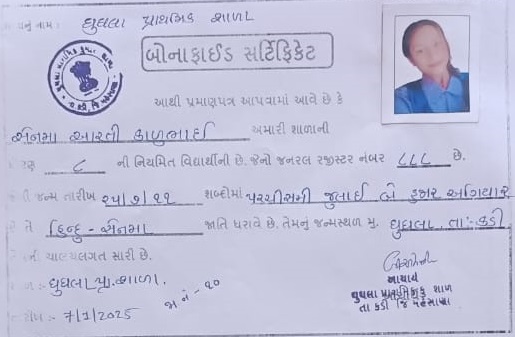 નું નામ : ઘુઘલા પ્રાથમિક શાળા
બોનાફાઈડ સર્ટિફિકેટ
આથી પ્રમાણપત્ર આપવામાં આવે છે કે
આરતી કાળુભાઈ અમારી શાળાની
૮ ની નિયમિત વિદ્યાર્થીની છે. જેનો જનરલ રજીસ્ટર નંબર ૮૮૮ છે.
જન્મ તારીખ ૨૫/૭/૧૧ શબ્દોમાં પચ્ચીસમી જુલાઈ બે હજાર અગિયાર
તે હિન્દુ - જાતિ ધરાવે છે. તેમનું જન્મસ્થળ મુ. ઘુઘલા. તા:-કડી
ની ચાલચલગત સારી છે.
ળ :- ઘુઘલા પ્રા. શાળા.
જા નં - ૧૦
7/1/2025
આચાર્ય
ઘુઘલા પ્રાથમિક શાળ
તા કડી જિ મહેસાણા